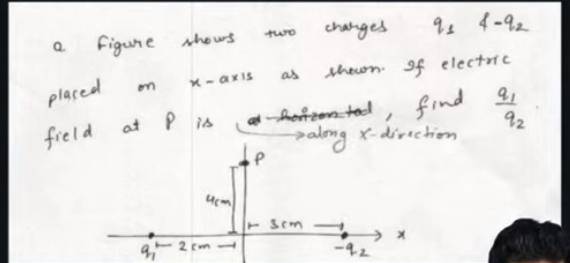 Q Figure shows two charges q1 & -q2
placed on x-axis as shown. If electric
field at P is along x-direction, find q1/q2
P
4cm
3cm
x
q1
2cm
-q2